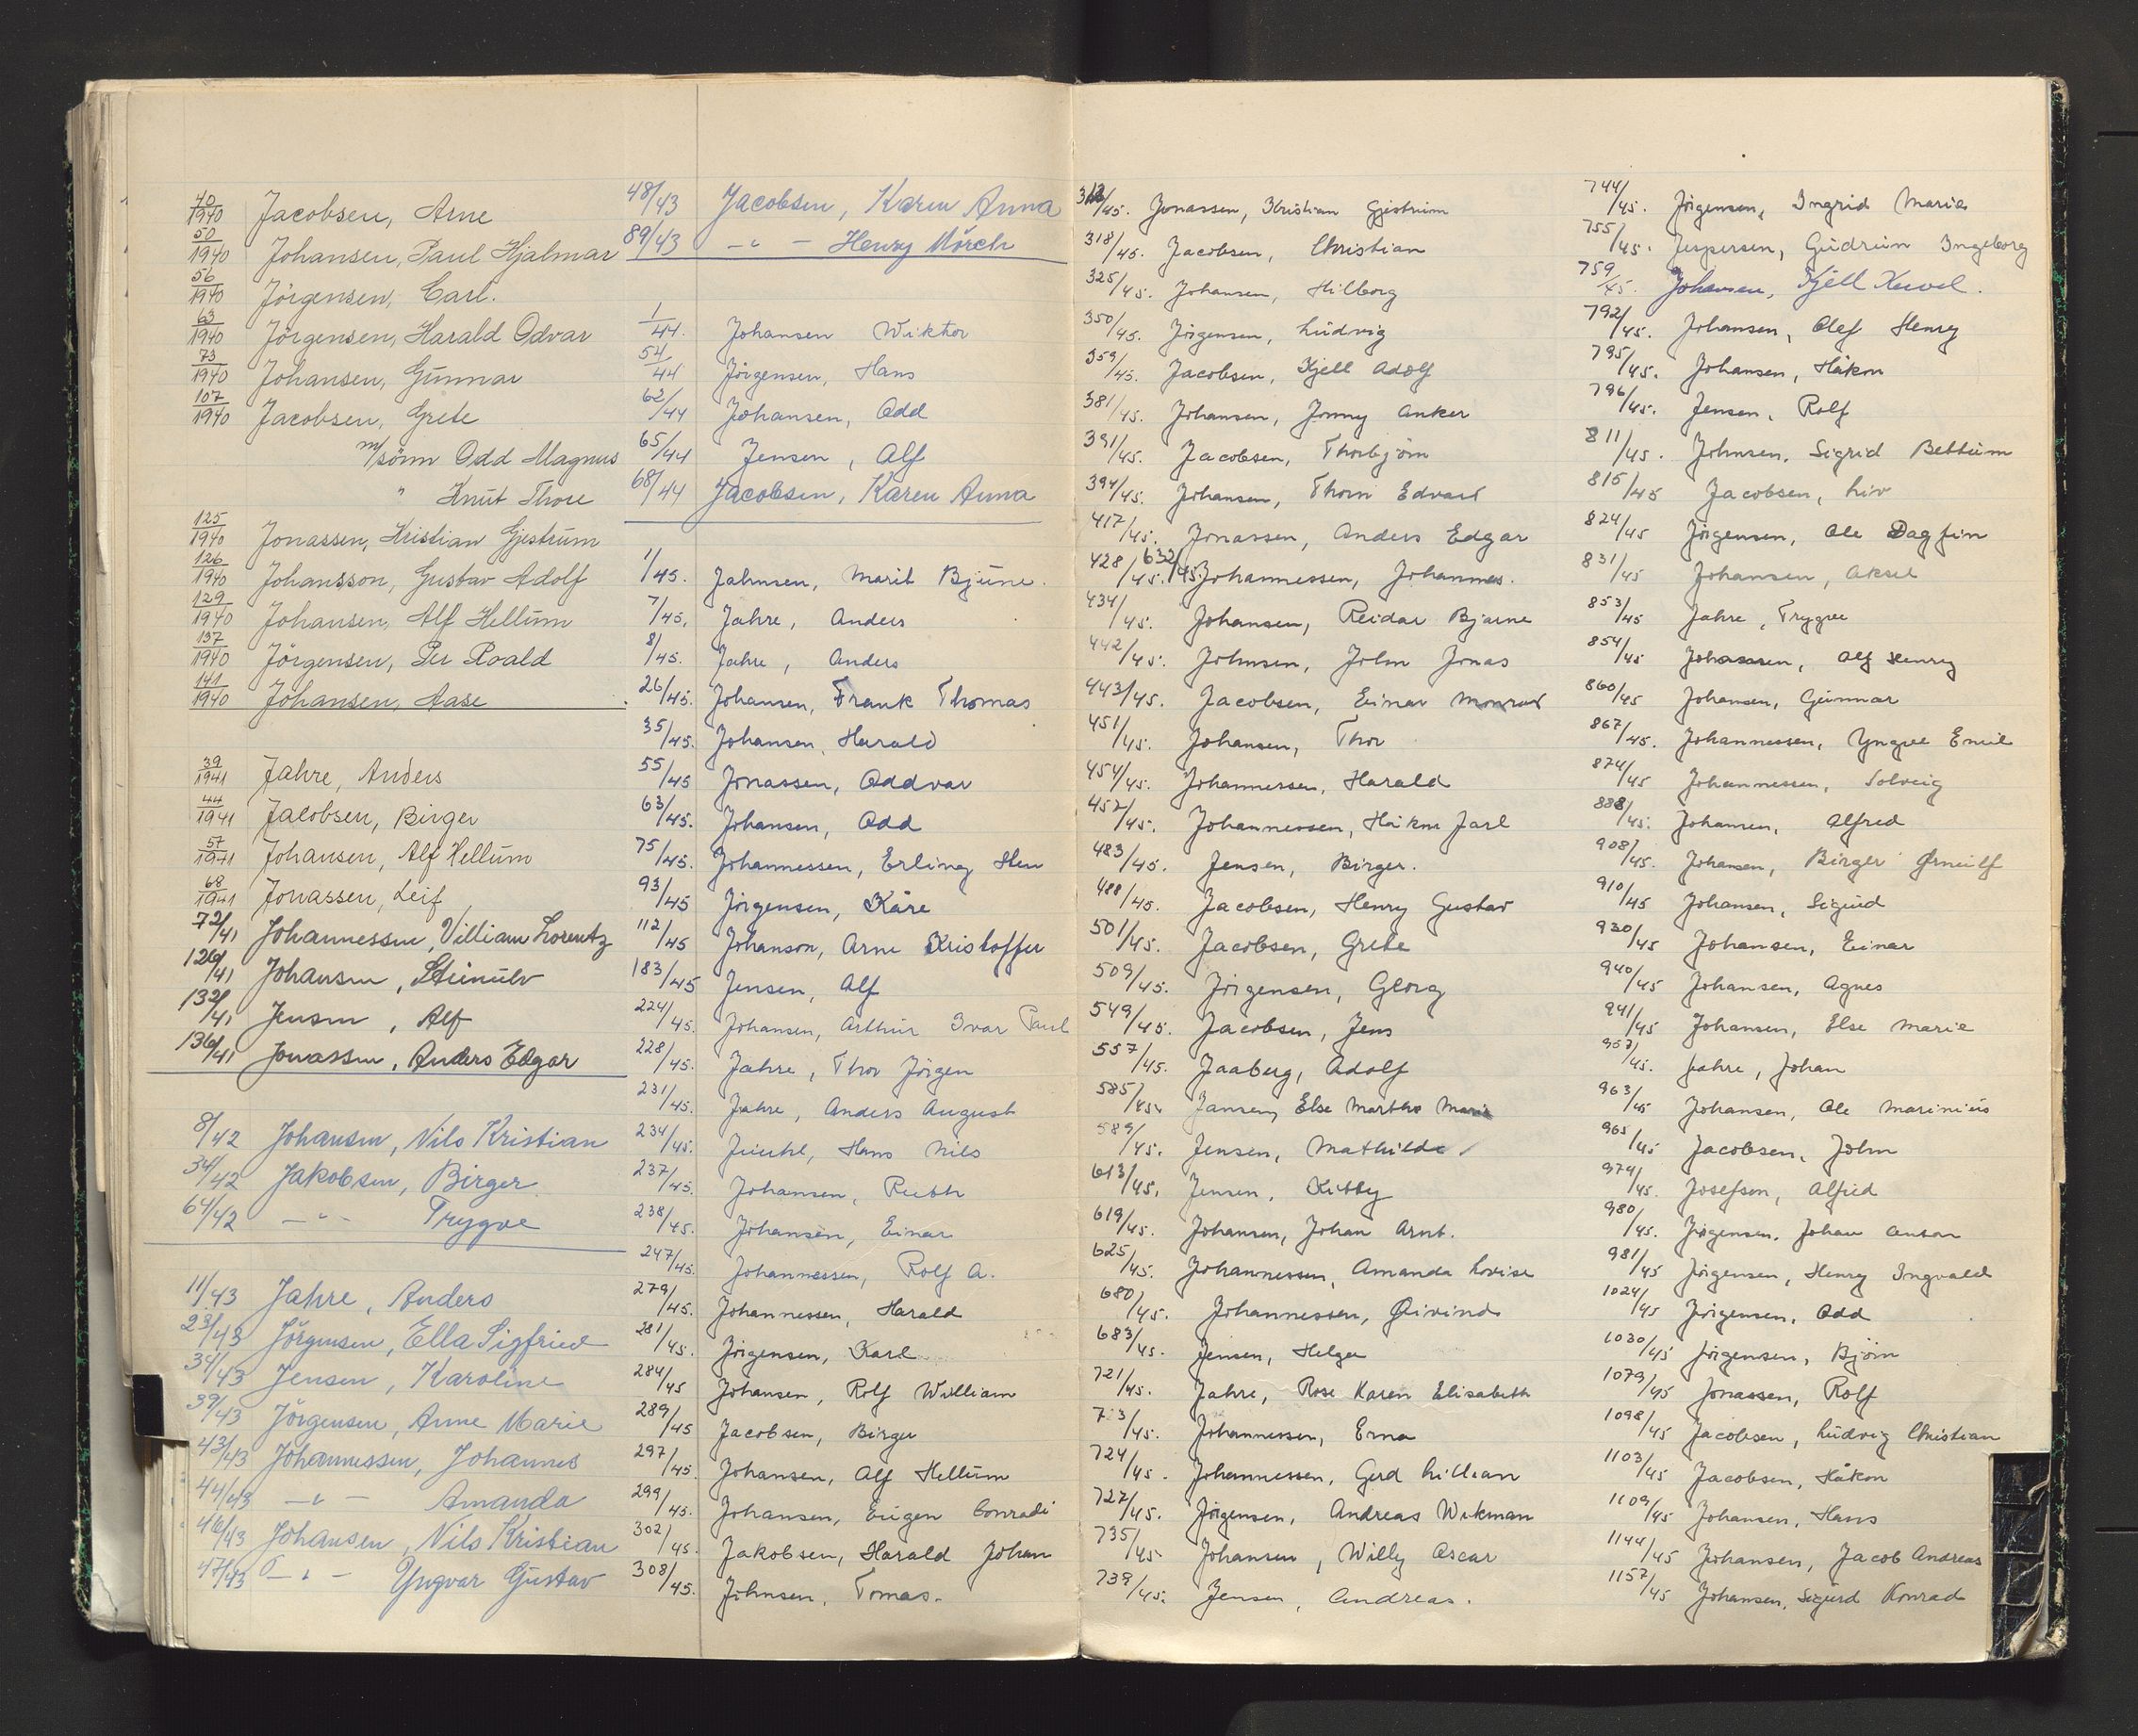 40/1940 Jacobsen, Arne
50/1940 Johansen, Paul Hjalmar
56/1940 Jörgensen, Carl.
63/1940 Jörgensen, Harald Odvar
73/1940 Johansen, Gunnar
107/1940 Jacobsen, Grete
m/sönn Odd Magnus
" Knut Thore
125/1940 Jonassen, Kristian Gjestrum
126/1940 Johansson, Gustav Adolf
129/1940 Johansen, Alf Hellum
137/1940 Jörgensen, Per Roald
141/1940 Johansen, Aase
39/1941 Jahre, Anders
44/1941 Jacobsen, Birger
57/1941 Johansen, Alf Hellum
68/1941 Jonassen, Leif
72/41 Johannessen, Villiam Lorentz
126/41 Johansen, Steinulv
132/41 Jensen, Alf
136/41 Jonassen, Anders Edgar
8/42 Johansen, Nils Kristian
34/42 Jakobsen, Birger
64/42 -"- Trygve
11/43 Jahre, Anders
23/43 Jörgensen, Ella Sigfried
34/43 Jensen, Karoline
39/43 Jörgensen, Anne Marie
43/43 Johannessen, Johannes
44/43 -"- Amanda
46/43 Johansen, Nils Kristian
47/43 -"- Yngvar Gustav
48/43 Jacobsen, Karen Anna
89/43 -"- Henry Mörch
1/44. Johansen Wiktor
54/44 Jörgensen, Hans
62/44 Johansen, Odd
65/44 Jensen, Alf
68/44 Jacobsen, Karen Anna
1/45. Jahnsen, Marit Bjune.
7/45. Jahre, Anders
8/45. Jahre, Anders
26/45. Johansen, Frank Thomas
35/45. Johansen, Harald
55/45 Jonassen, Oddvar
63/45. Johansen, Odd
75/45. Johannessen, Erling Hen
93/45 Jörgensen, Kåre
112/45 Johanson, Arne Kristoffer
183/45 Jensen, Alf
224/45. Johansen, Arthur Ivar Paul
228/45. Jahre, Thor Jörgen
231/45. Jahre, Anders August
234/45. Hans Nils
237/45. Johansen, Ruth
238/45. Johansen, Einar
247/45. Johannessen, Rolf A.
279/45. Johannessen, Harald
281/45. Jörgensen, Karl
284/45 Johansen, Rolf William
289/45 Jacobsen, Birger
297/45. Johansen, Alf Hellum
299/45. Johansen, Eugen Conradi
302/45. Jakobsen, Harald Johan
308/45. Johnsen, Tomas.
/45. Jonassen, Kristian Gjestrum
318/45. Jacobsen, Christian
325/45. Johansen, Hilborg
350/45. Jörgensen, Ludvig
359/45. Jacobsen, Kjell Adolf
381/45. Johansen, Jonny Anker
391/45. Jacobsen, Thorbjörn
394/45. Johansen, Thorn Edvard
417/45. Jonassen, Anders Edgar
428/45. 632/45. Johannessen, Johannes.
434/45. Johansen, Reidar Bjarne
442/45. Johnsen, John Jonas
443/45. Jacobsen, Einar Monrad
451/45. Johansen, Thor
454/45. Johannessen, Harald
452/45. Johannessen, Håkon Jarl
483/45. Jensen, Birger.
488/45. Jacobsen, Henry Gustav
501/45. Jacobsen, Grete
509/45. Jörgensen, Georg
549/45. Jacobsen, Jens
557/45. Jaaberg, Adolf
585/45. Jansen, Else Martha Marie
589/45. Jensen, Mathilde
613/45. Jensen, Kitty
619/45. Johansen, Johan Arnt.
625/45. Johannessen, Amanda Lovise
680/45. Johannessen, Öivind
683/45. Jensen, Helga
721/45. Jahre, Rose Karen Elisabeth
723/45. Johannessen, Erna
724/45. Johannessen, Gerd Lillian
727/45. Jörgensen, Andreas Wikman
735/45 Johansen, Willy Oscar
739/45. Jensen, Andreas.
744/45. Jörgensen, Ingrid Marie
755/45. Jespersen, Gudrun Ingeborg
759/45. Johansen, Kjell
792/45. Johansen, Olef Henry
795/45. Johansen, Håkon
796/45. Jensen, Rolf
811/45. Johnsen, Sigrid Bettum
815/45 Jacobsen, Liv
824/45 Jörgensen, Ole Dagfin
831/45 Johansen, Aksel
853/45 Jahre, Trygve
854/45 Johansen, Alf Henry
860/45 Johansen, Gunnar
867/45. Johannessen, Yngve Emil
874/45 Johannessen, Solveig
888/45. Johansen, Alfred
908/45. Johansen, Birger Örnulf
910/45 Johansen, Sigurd
930/45 Johansen, Einar
940/45 Johansen, Agnes
941/45 Johansen, Else Marie
957/45. Jahre, Johan
963/45 Johansen, Ole Marinius
965/45 Jacobsen, John
974/45. Josefsen, Alfred
980/45. Jörgensen, Johan Anton
981/45 Jörgensen, Henry Ingvald
1024/45 Jörgensen, Odd
1030/45 Jörgensen, Björn
1079/45 Jonassen, Rolf
1098/45 Jacobsen, Ludvig Christian
1103/45 Jacobsen, Håkon
1109/45 Johansen, Hans
1144/45 Johansen, Jacob Andreas
1157/45 Johansen, Sigurd Konrad